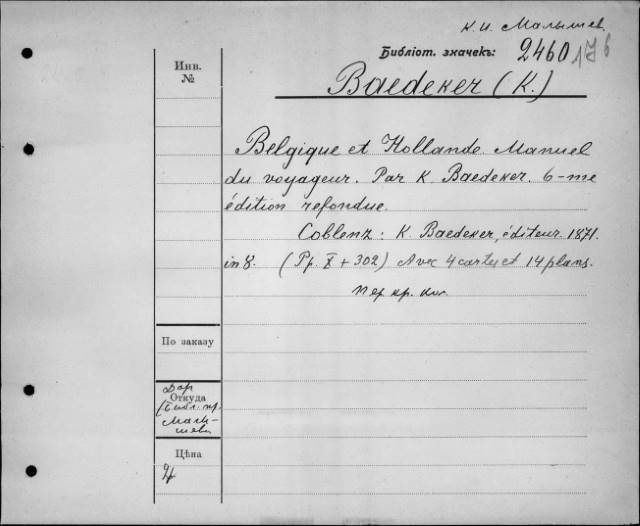 К. И. Малышев
Библіот. значекъ: 2460
176
Инв.
№
Baedeker (K.)
Belgique et Hollande. Manuel
du voyageur. Par K. Baedeker. 6-me
édition refondue.
Coblenz: K. Baedeker, éditeur. 1871.
in 8. (Pp. X + 302) Avec 4 cartes et 14 plans.
пер. кр. кн.
По заказу
Дар
Откуда
(библ. пр.
Малы-
шева
Цѣна